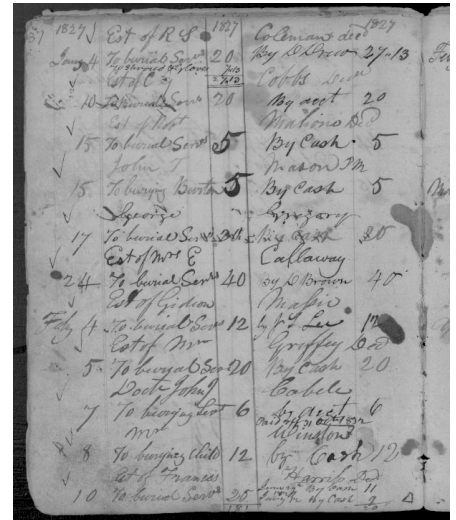 1827 Est of R S 1827 Coleman decd 1827
Jany 4 To burial Servs 20 By D Drew 27.13
To Shroud & Gloves 7.13
Est of C 27.13 Cobbs Decd
10 To Burial Servs 20 By acct 20
Est of Robt Mahons Decd
15 To burial Servs 5 By Cash 5
John T Mason
15 To burying Burton 5 By Cash 5
George Gregory
17 To burial Servs 20
Est of Mrs E Callaway
24 To burial Servs 40 By D Brown 40
Est of Gideon Massie
Feby 4 To burial Servs 12 by Lee 12
Est of Mr Griffey Decd
5 To burial Ser 20 By Cash 20
Doctr John J Cabell
7 To burying 6 by acct 6
Mr Winston
8 To burying Child 12 by Cash 12
Est of Frances Harris Decd
By Cash 11
10 To burial Servs 20 By Cash